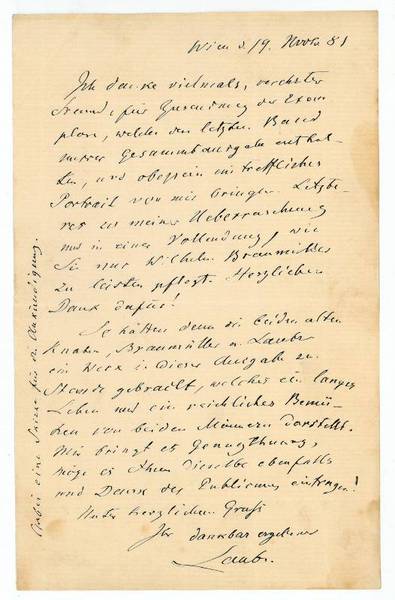 Wien d. 19. Novbr 81
Ich danke vielmals, verehrter
Freund, für Zusendung der Exem
plare, welche den letzten Band
unserer Gesammtausgabe enthal-
ten, und obenein ein treffliches
Portrait von mir bringen. Letzte-
res zu meiner Ueberraschung
und in einer Vollendung, wie
Sie nur Wilhelm Braumüller
zu leisten pflegt. Herzlichen
Dank dafür!
So hätten denn die beiden alten
Knaben, Braumüller u. Laube
ein Werk in dieser Ausgabe zu
Stande gebracht, welches ein langes
Leben und ein reichliches Bemü-
hen von beiden Männern darstellt.
Mir bringt es Genugthuung,
möge es Ihnen dieselbe ebenfalls
und Dank des Publicums eintragen!
Unter herzlichem Gruß
Ihr dankbar ergebener
Laube.
eine für die Ankündigung.